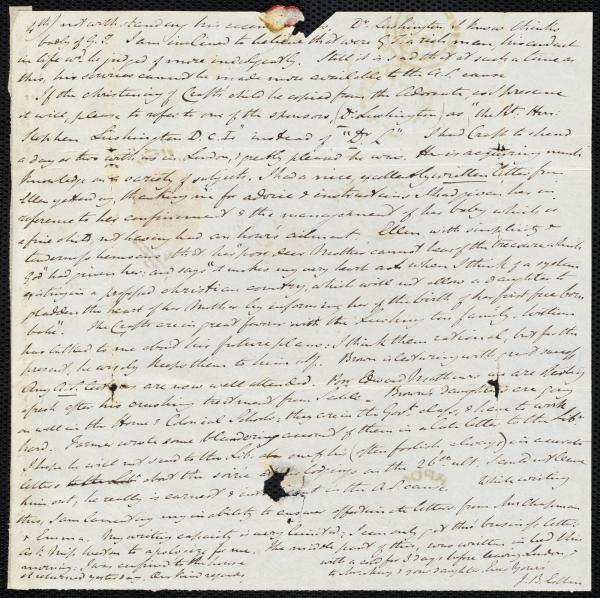 4th/ notwithstanding his Dr. Lushington, I know thinks
badly of G.T. I am inclined to believe that were G.T. a rich man, his conduct
in life wd. be judged of more indulgently. Still it is sad that at such a time as
this, his services cannot be made more available to the A.S. cause
If the christening of Crafts' child be copied from the Advocate, as I presume
it will, please to refer to one of the sponsors (Dr. Lushington) as "the Rt. Hon:
Stephen Lushington D.C.L" instead of "Dr. L" I had Craft to spend
a day or two with us in London, & greatly pleased he was. He is acquiring much
knowledge on a variety of subjects. I had a nice, excellently written letter from
Ellen yesterday, thanking me for advice & instructions I had given her in
reference to her confinement & the management of her baby which is
a fine child, not having had an hour's ailment. Ellen, with simplicity &
tenderness bemoans that her "poor dear Mother cannot hear of the treasure which
God" had given her: and says "it makes my very heart ache when I think of a system
existing in a professed christian country, which will not allow a daughter to
gladden the heart of her Mother by informing her of the birth of her first free born
babe". The Crafts are in great favour with the Lushington family. William
has talked to me about his future plans; I think them rational, but for the
present, he wisely keeps them to himself. Brown is lecturing with good success
Any A.S. are now well attended. Edward Mathews
afresh after his crushing treatment from Brown's daughters are going
on well in the Home & Colonial Schools: they are in the Govt. class, & have to work
hard. Farmer wrote some blundering account of them in a late letter to the Lib.
I hope he will not send to the Lib. one of his (often foolish, always) inaccurate
letters about the on the 26th ult. I could not leave
him out, he really is earnest & in the A.S. cause. While writing
this, I am lamenting my inability to answer affectionate letters from Mrs Chapman
& Emma. My writing capacity is very limited; I can only get this business letter
Ask Miss Weston to apologize for me. The middle part of this, was written in bed this
morning: I was confined to the house with a cold for 3 days before leaving London, &
I returned yesterday. Our kind regards to & your daughter. Ever Yours
J. B. Estlin